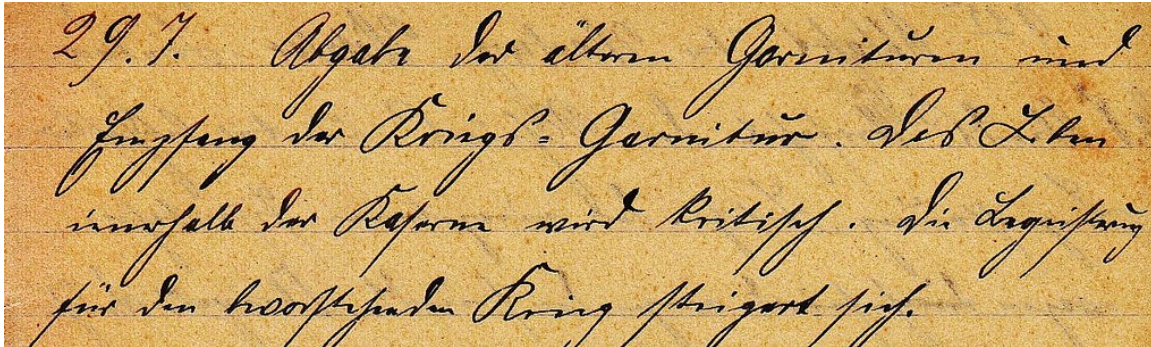 29.7. Abgabe der älteren Garnituren und
Empfang der Kriegs-Garnitur. Das Leben
innerhalb der Kaserne wird kritisch. Die Begeistrung
für den bevorstehenden Krieg steigert sich.